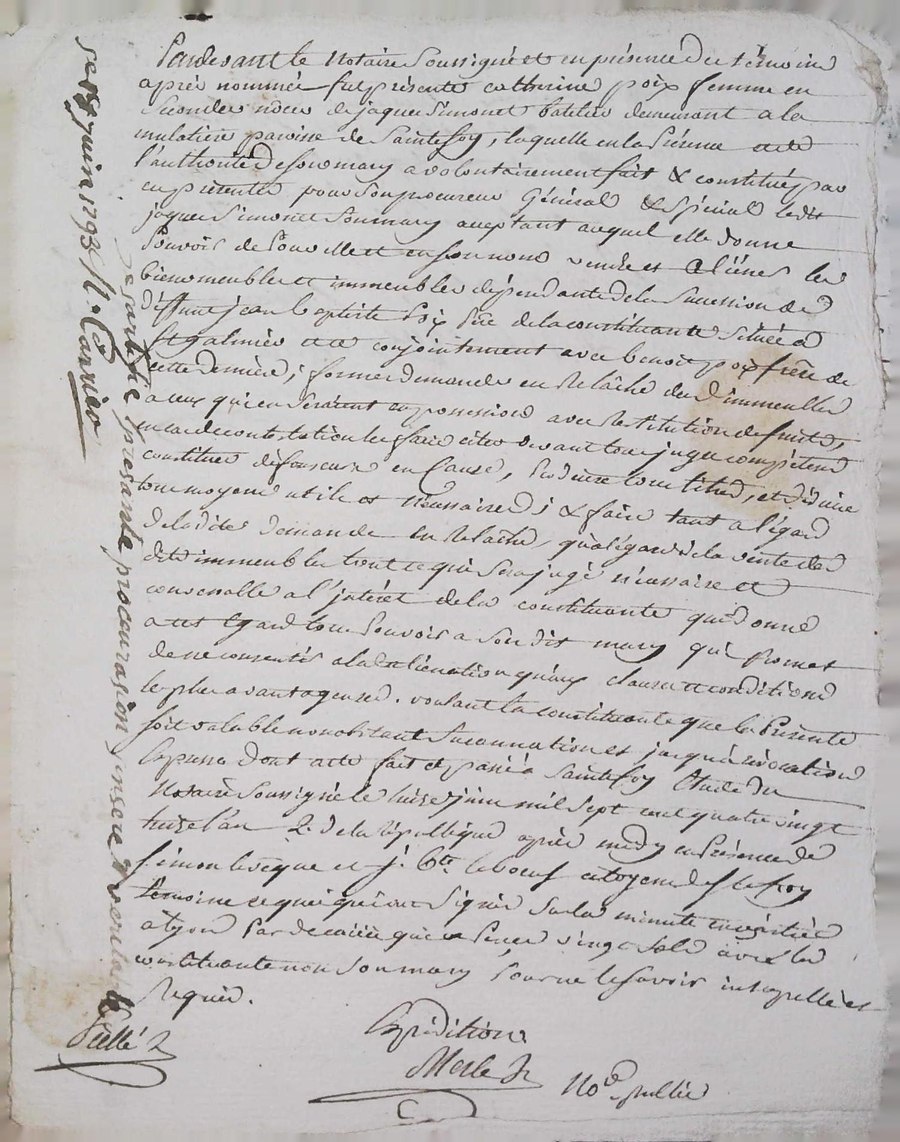 Pardevant le Notaire Soussigné et en présence des témoins
après nommés fut présente catherine poix femme en
secondes noces de jaques Simonet batelier demeurant a la
mulatière paroisse de Saintefoy, laquelle en la présence et de
l'authorité de son mary a volontairement fait & constitué par
ces présentes pour son procureur Général & spécial ledit
jaques Simonet Son mary acceptant auquel elle donne
Pouvoir de Pour elle et en son nom vendre et aliéner les
biens meubles et immeubles dépendants de la Succession de
déffunt jean baptiste Poix Père de la constituante Situés a
St galmier et ce conjointement avec benoit poix frère de
cette dernière, former demande en Relâche des d. immeubles
a ceux qui en Seraient en possession avec Restitution de fruits,
en cas de contestation les faire citer devant tous juges compétens
constituer déffenseurs en Cause, Produire tous titres, et déduire
tous moyens utiles et Nécessaires; & faire tant a l'égard
de la dite demande en Relâche, qu'a l'égard de la vente des
dits immeubles tout ce qui Sera jugé nécessaire et
convenable a l'intérêt de la constituante qui donne
a cet Egard tous Pouvoirs a Son dit mary qui Promet
de ne consentir a la d. aliénation qu'aux clauses et conditions
les plus avantageuses. voulant la constituante que la Présente
soit valable nonobstant Surannation et jusqu'a révocation
Expresse dont acte fait et passé a Saintefoy Etude du
Notaire Soussigné le treize juin mil Sept cent quatre vingt
treize l'an 2. de la république après midy en Présence de
Simon leveque et j. bte. leboeuf citoyens de Ste foy
témoins requis qui ont Signés Sur la minute
a Lyon Par qui a Perçu vingt Sols avec la
constituante non Son mary Pour ne le Savoir interpellé et
Requis.
Expédition
Merle
Nore. public
Sallé
certifie la presante procuration sincere et veritable
ce juin 1793 /.